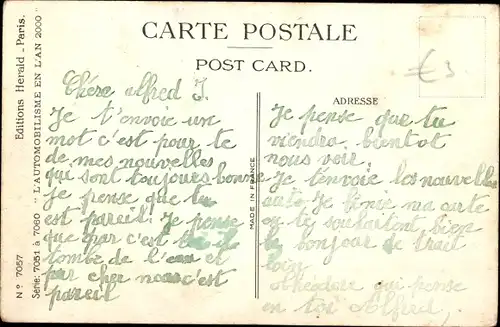 CARTE POSTALE
POST CARD.
Editions Herald _ Paris.
"L'AUTOMOBILISME EN L'AN 2000"
Série: 7051 à 7060
Nº 7057
MADE IN FRANCE
€3
Chére alfred J.
Je t'envoie un
mot c'est pour te
de mes nouvelles
qui sont toujours bonne
je pense que tu
est pareil. Je pense
que par c'est
tombe de l'eau et
par cher nous c'est
pareil
ADRESSE
Je pense que tu
viendra bientot
nous voir.
Je t'envoie les nouvelles
Je ma carte
ou te souhaitent bien
le bonjour de
loin
qui pense
en toi Alfred,